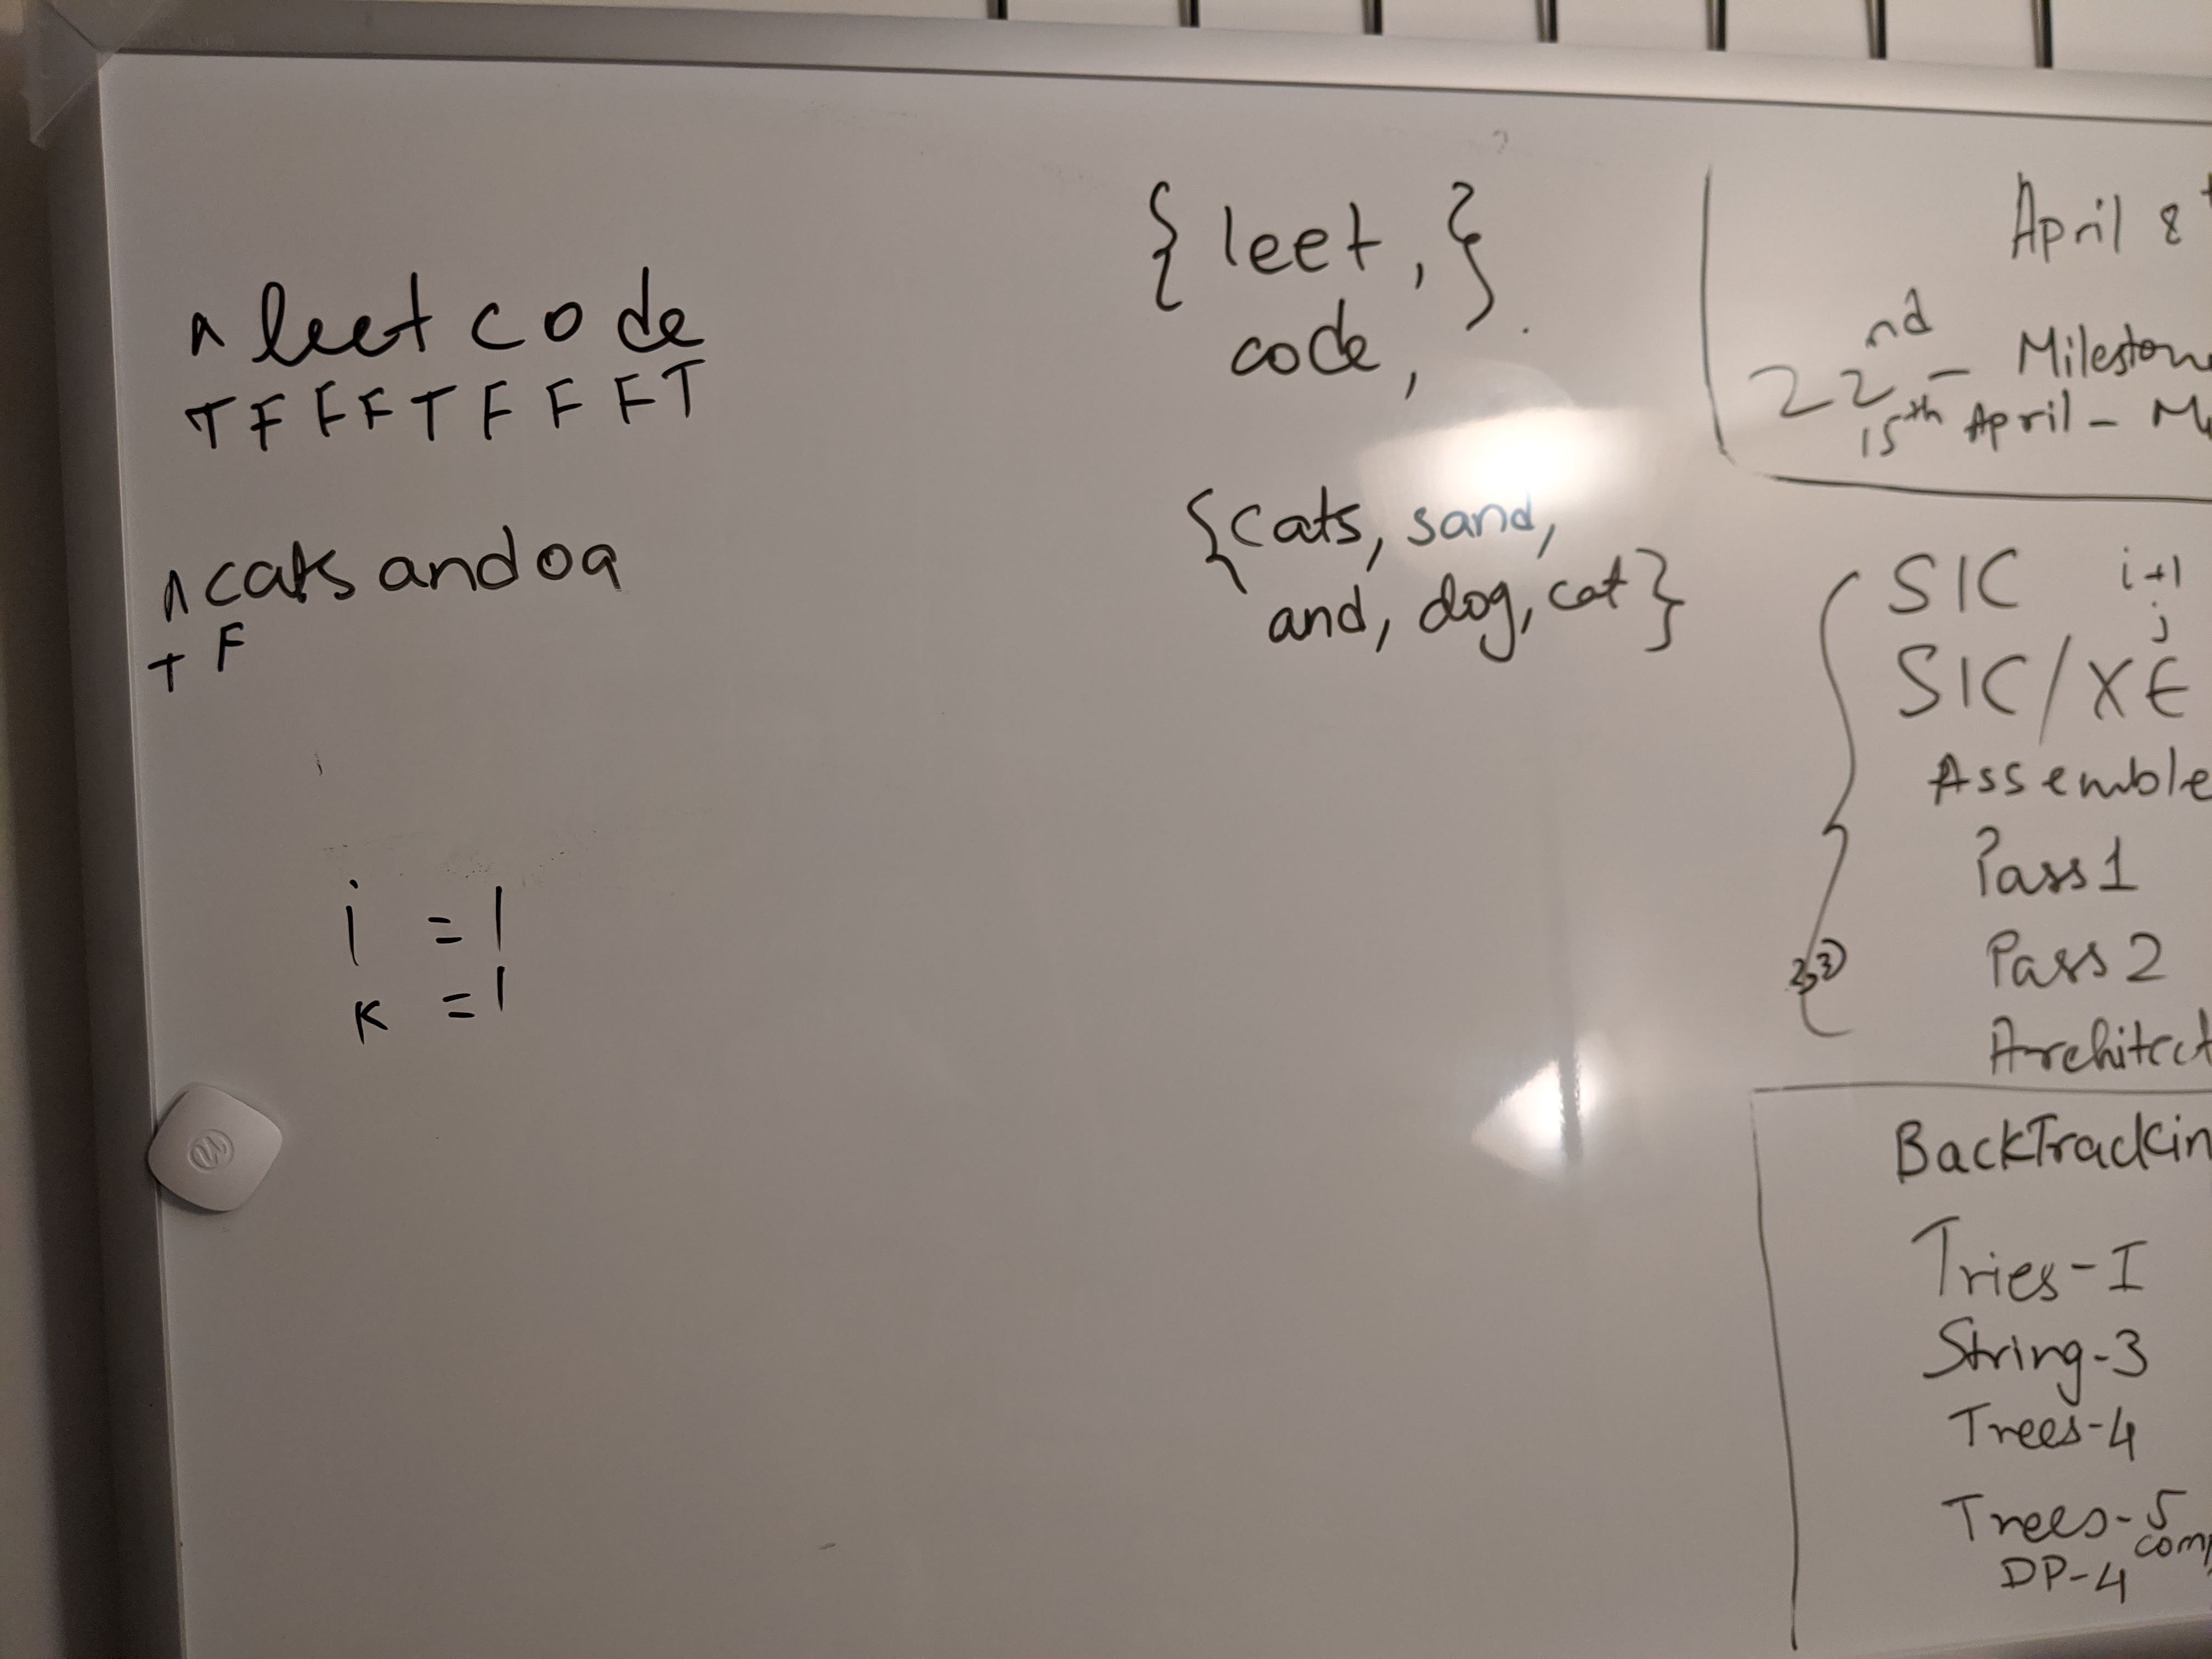 ^ leet code
T F F F T F F F T
^ cats and og
T F
i = 1
K = 1
{ leet, }.
code,
{cats, sand,
and, dog, cat}
April 8
22nd - Milestone
15th April - M
SIC i+1
j
SIC/XE
Assemble
Pass 1
Pass 2
Architect
BackTrackin
Tries-I
String-3
Trees-4
Trees-5
comp
DP-4